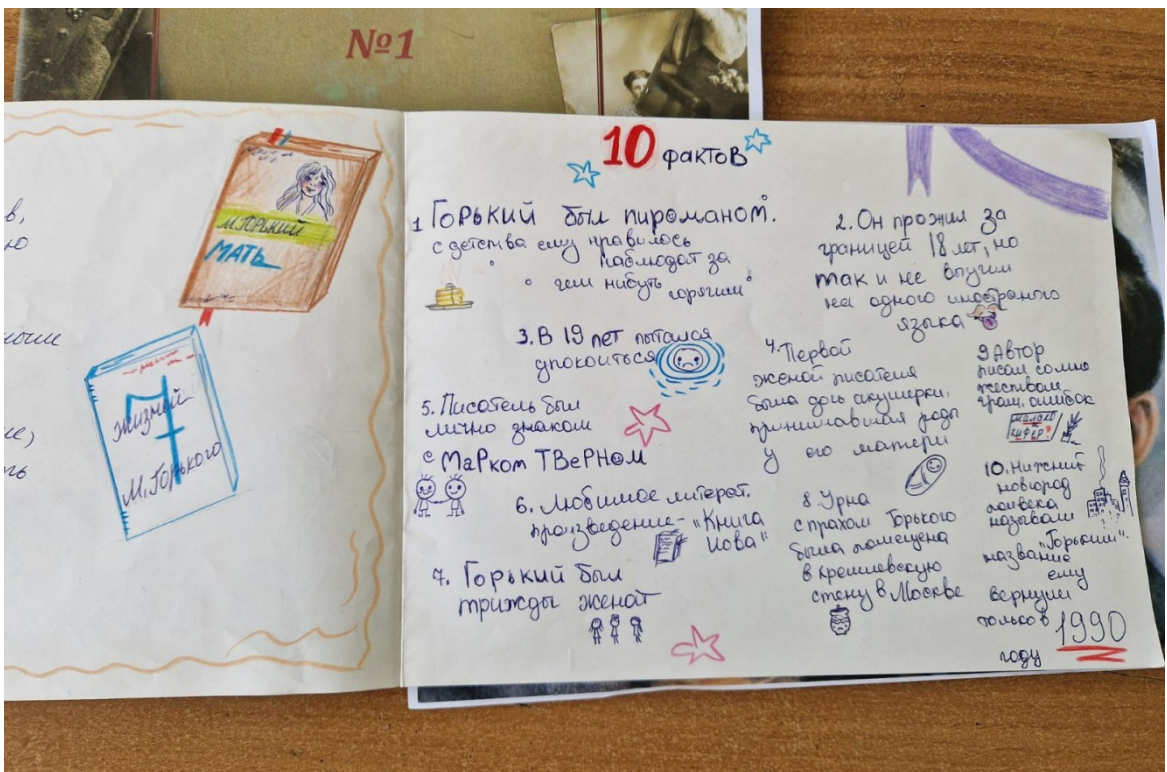 №1
в,
ю
М. ГОРЬКИЙ
МАТЬ
жизней
М. Горького
10 фактов
1 Горький был пироманом.
с детства ему нравилось
наблюдат за
чем нибуть горячим
2. Он прожил за
границей 18 лет, но
так и не вгучил
на одного иностраного
языка
3. В 19 лет питался
упокоиться
4. Первой
женой писателя
была доч акушерки,
принимавшая роды
у его матери
5. Писатель был
лично знаком
с МаРком ТВеРНом
6. Любимое литерат.
произведение - "Книга
Иова"
7. Горький был
трижды женат
8. Урна
с прахом Горького
была помещена
в кремлевскую
стену в Москве
9 Автор
писал со мно
жеством
грам. ошибок
10. Нижний
новгород
полвека
называли
"Горьким".
название
ему
вернули
только в 1990
году